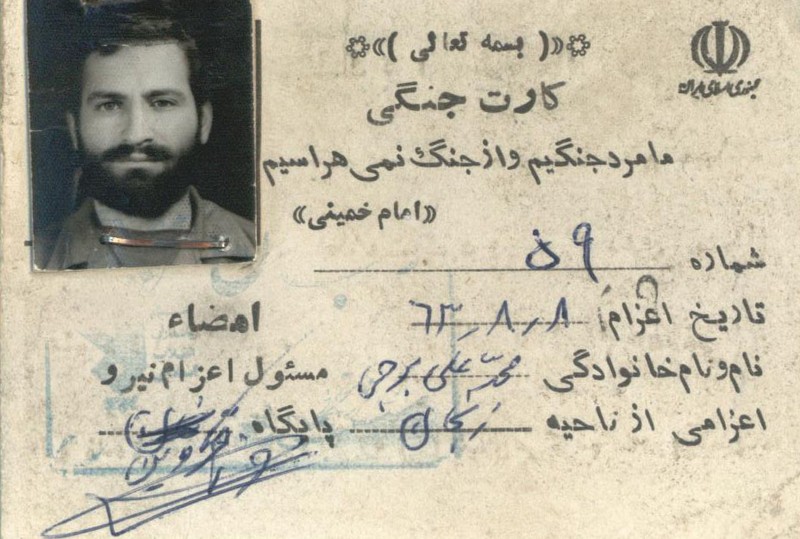 «( بسمه تعالی )»
جمهوری اسلامی ایران
کارت جنگی
ما مرد جنگیم و از جنگ نمی هراسیم
«امام خمینی»
شماره ۵۹
تاریخ اعزام: ۶۳٫۸٫۸
نام و نام خانوادگی محمد علی برجی
امضاء
مسئول اعزام نیرو
اعزامی از ناحیه زنجان
پایگاه